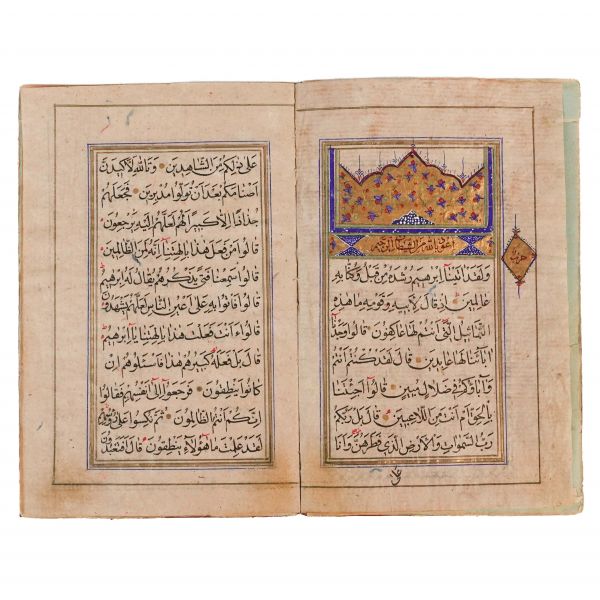 اعوذ بالله من الشيطان الرجيم
حزب
ولقد اتينا ابرهيم رشده من قبل وكنا به
عالمين اذ قال لابيه وقومه ما هذه
التماثيل التي انتم لها عاكفون قالوا وجدنا
اباءنا لها عابدين قال لقد كنتم انتم
واباؤكم في ضلال مبين قالوا اجئتنا
بالحق ام انت من اللاعبين قال بل ربكم
رب السموات والارض الذي فطرهن وانا
على
على ذلكم من الشاهدين وتالله لاكيدن
اصنامكم بعد ان تولوا مدبرين فجعلهم
جذاذا الا كبيرا لهم لعلهم اليه يرجعون
قالوا من فعل هذا بالهتنا انه لمن الظالمين
قالوا سمعنا فتى يذكرهم يقال له ابرهيم
قالوا فاتوا به على اعين الناس لعلهم يشهدون
قالوا ءانت فعلت هذا بالهتنا يا ابرهيم
قال بل فعله كبيرهم هذا فاسئلوهم ان
كانوا ينطقون فرجعوا الى انفسهم فقالوا
انكم انتم الظالمون ثم نكسوا على رؤسهم
لقد علمت ما هؤلاء ينطقون قال افتعبدون